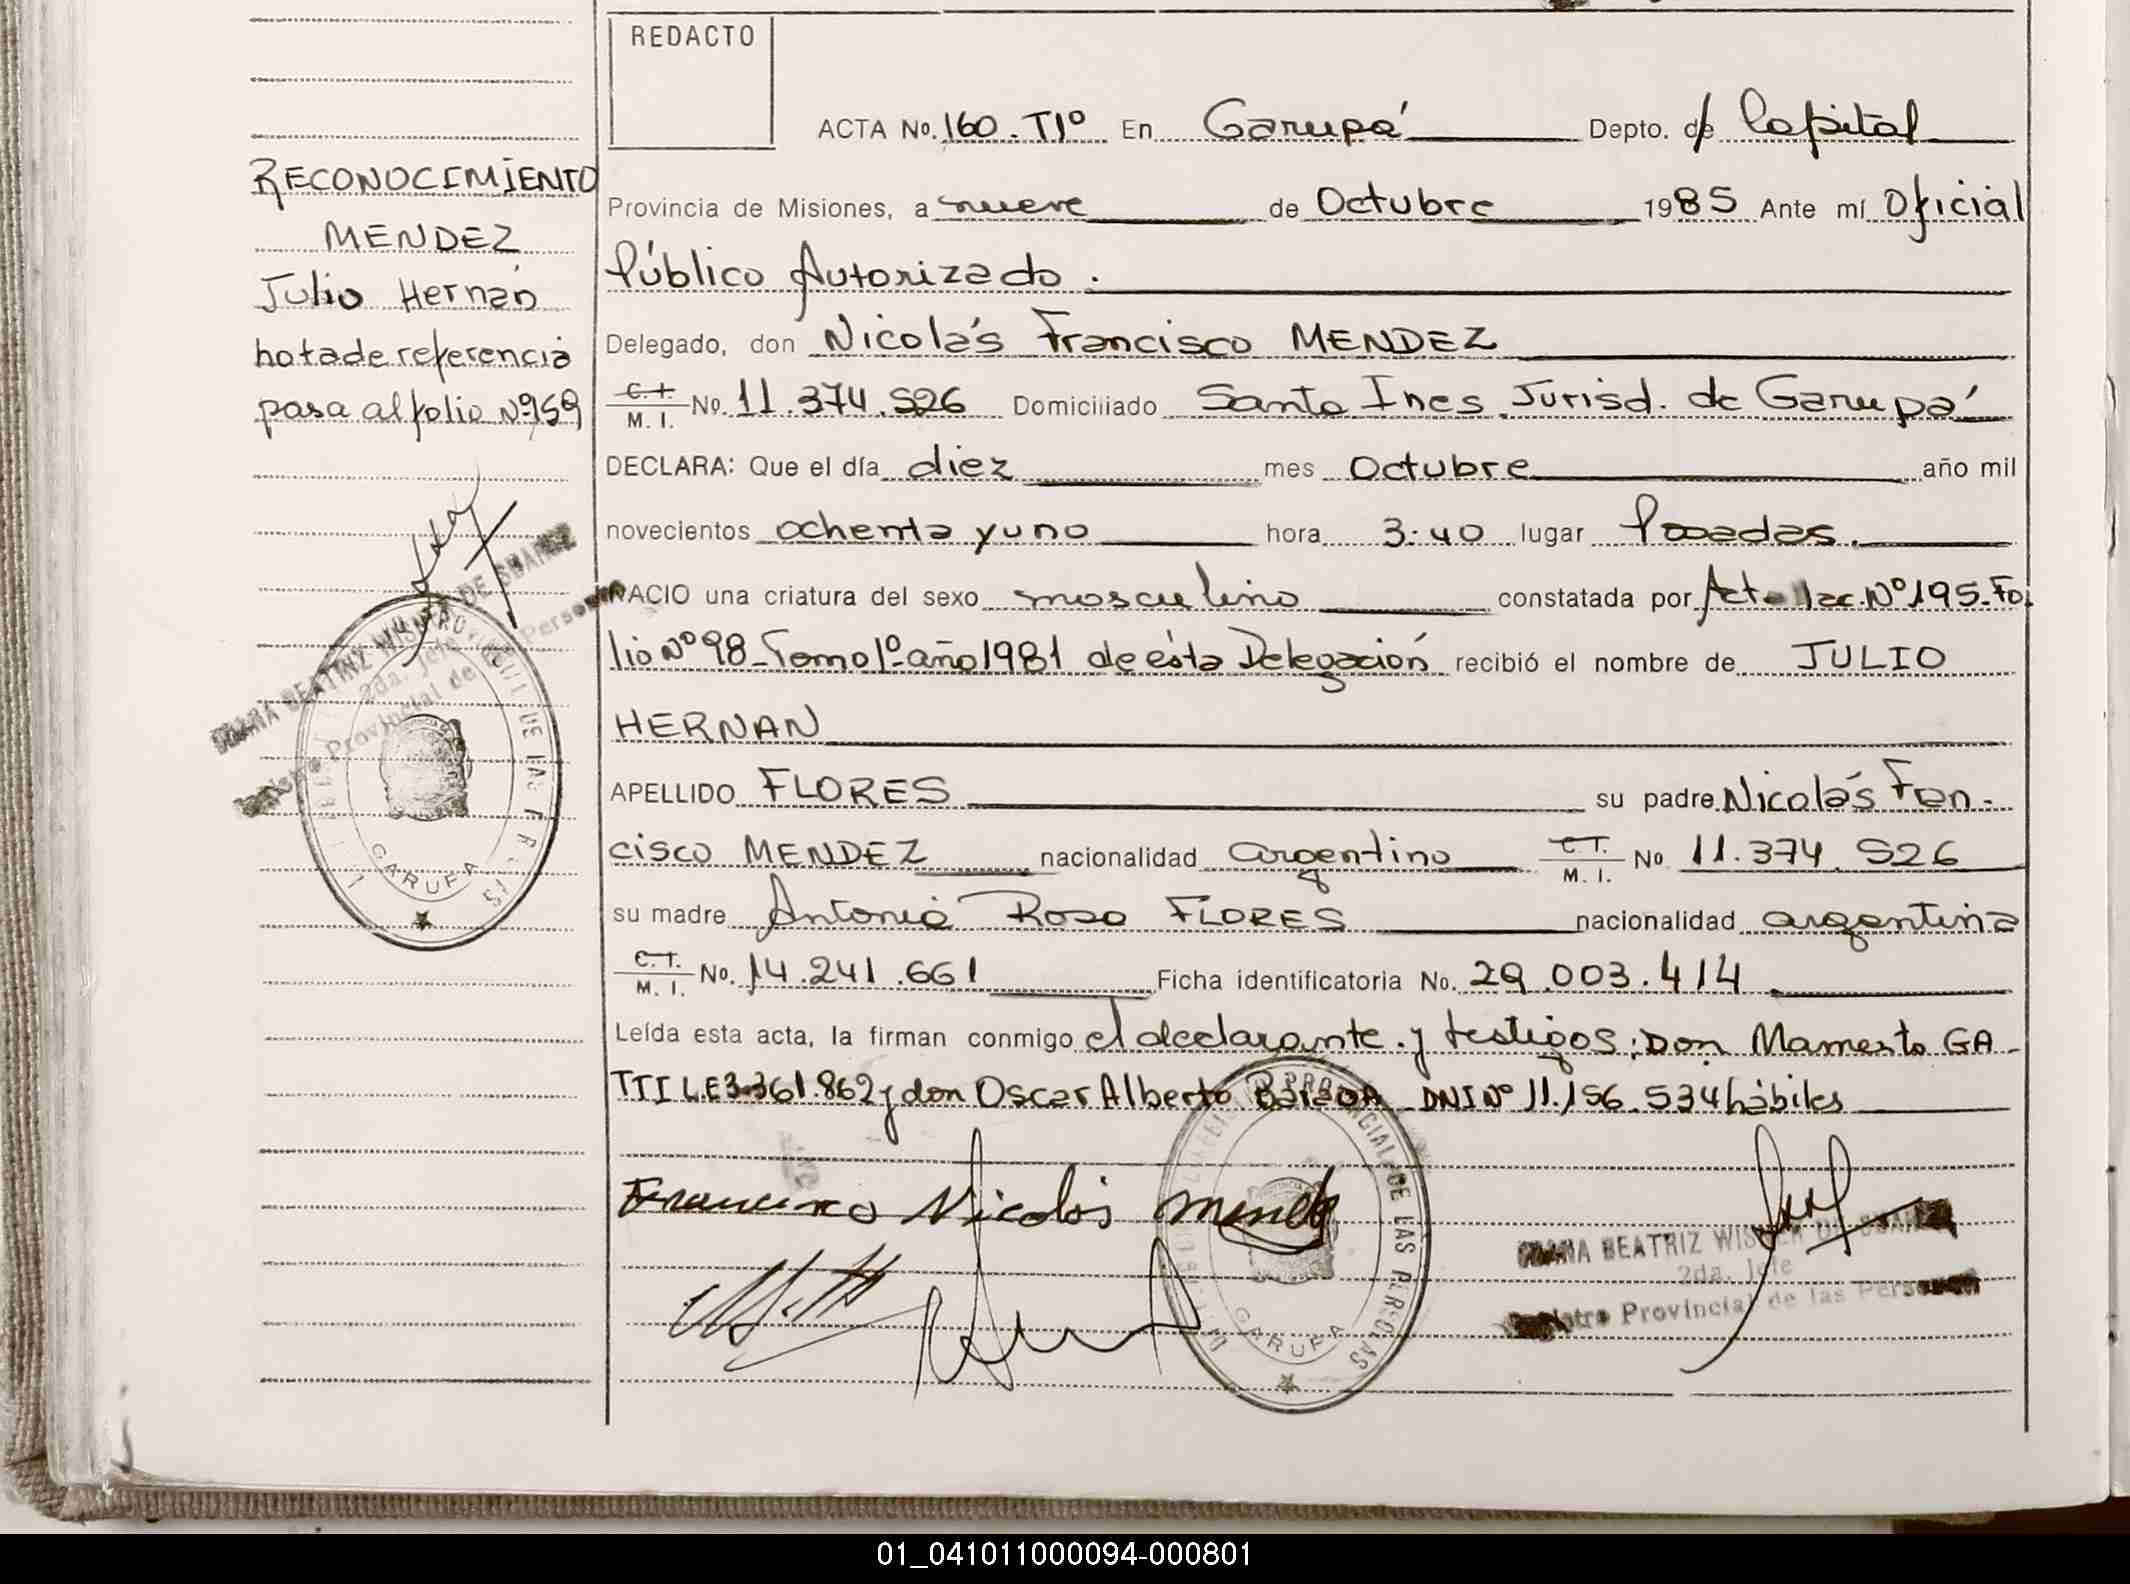 REDACTO
ACTA No. 160. T1º En Garupá Depto. de Capital
Provincia de Misiones, a nueve de Octubre 1985 Ante mí Oficial
Público Autorizado.
Delegado, don Nicolás Francisco MENDEZ
C.I. M. I. No. 11.374.526 Domiciliado Santa Ines Jurisd. de Garupá
DECLARA: Que el día diez mes Octubre año mil
novecientos ochenta y uno hora 3:40 lugar Posadas.
NACIO una criatura del sexo masculino constatada por Acta Nac. Nº 195-Fo
lio Nº 98-Tomo 1º-año 1981 de ésta Delegación recibió el nombre de JULIO
HERNAN
APELLIDO FLORES su padre Nicolás Fran-
cisco MENDEZ nacionalidad argentino C.I. M. I. No 11.374.526
su madre Antonia Rosa FLORES nacionalidad argentina
C.I. M. I. No. 14.241.661 Ficha identificatoria No. 29.003.414
Leída esta acta, la firman conmigo el declarante y testigos: Don Mamerto GA-
TTI LE 3.361.862 y don Oscar Alberto DNI Nº 11.156.534 hábiles
Francisco Nicolás Mendez
BEATRIZ
2da. Jefe
Registro Provincial de las Personas
PROVINCIAL DE LAS PERSONAS
GARUPA
RECONOCIMIENTO
MENDEZ
Julio Hernán
nota de referencia
pasa al folio Nº 159
BEATRIZ
2da. Jefe
Registro Provincial de
GARUPA
01_041011000094-000801